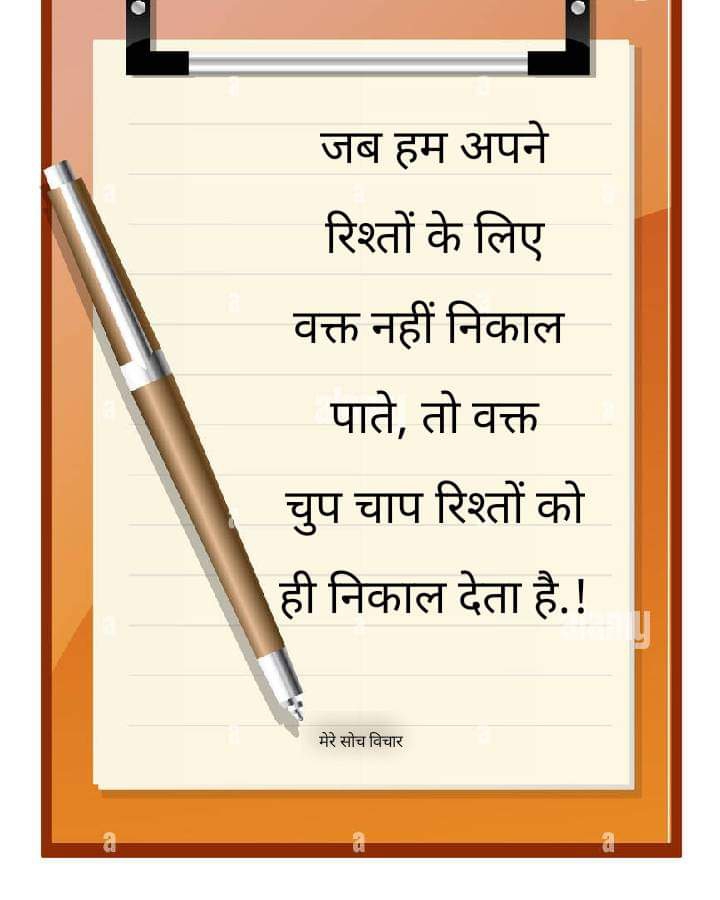 जब हम अपने
रिश्तों के लिए
वक्त नहीं निकाल
पाते, तो वक्त
चुप चाप रिश्तों को
ही निकाल देता है.!
alamy
मेरे सोच विचार
a
a
a